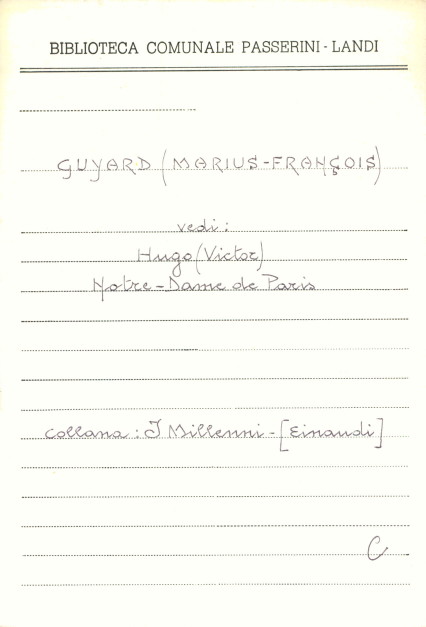 BIBLIOTECA COMUNALE PASSERINI - LANDI
GUYARD (MARIUS-FRANÇOIS)
vedi:
Hugo (Victor)
Notre-Dame de Paris
collana: I Millenni - [Einaudi]
C